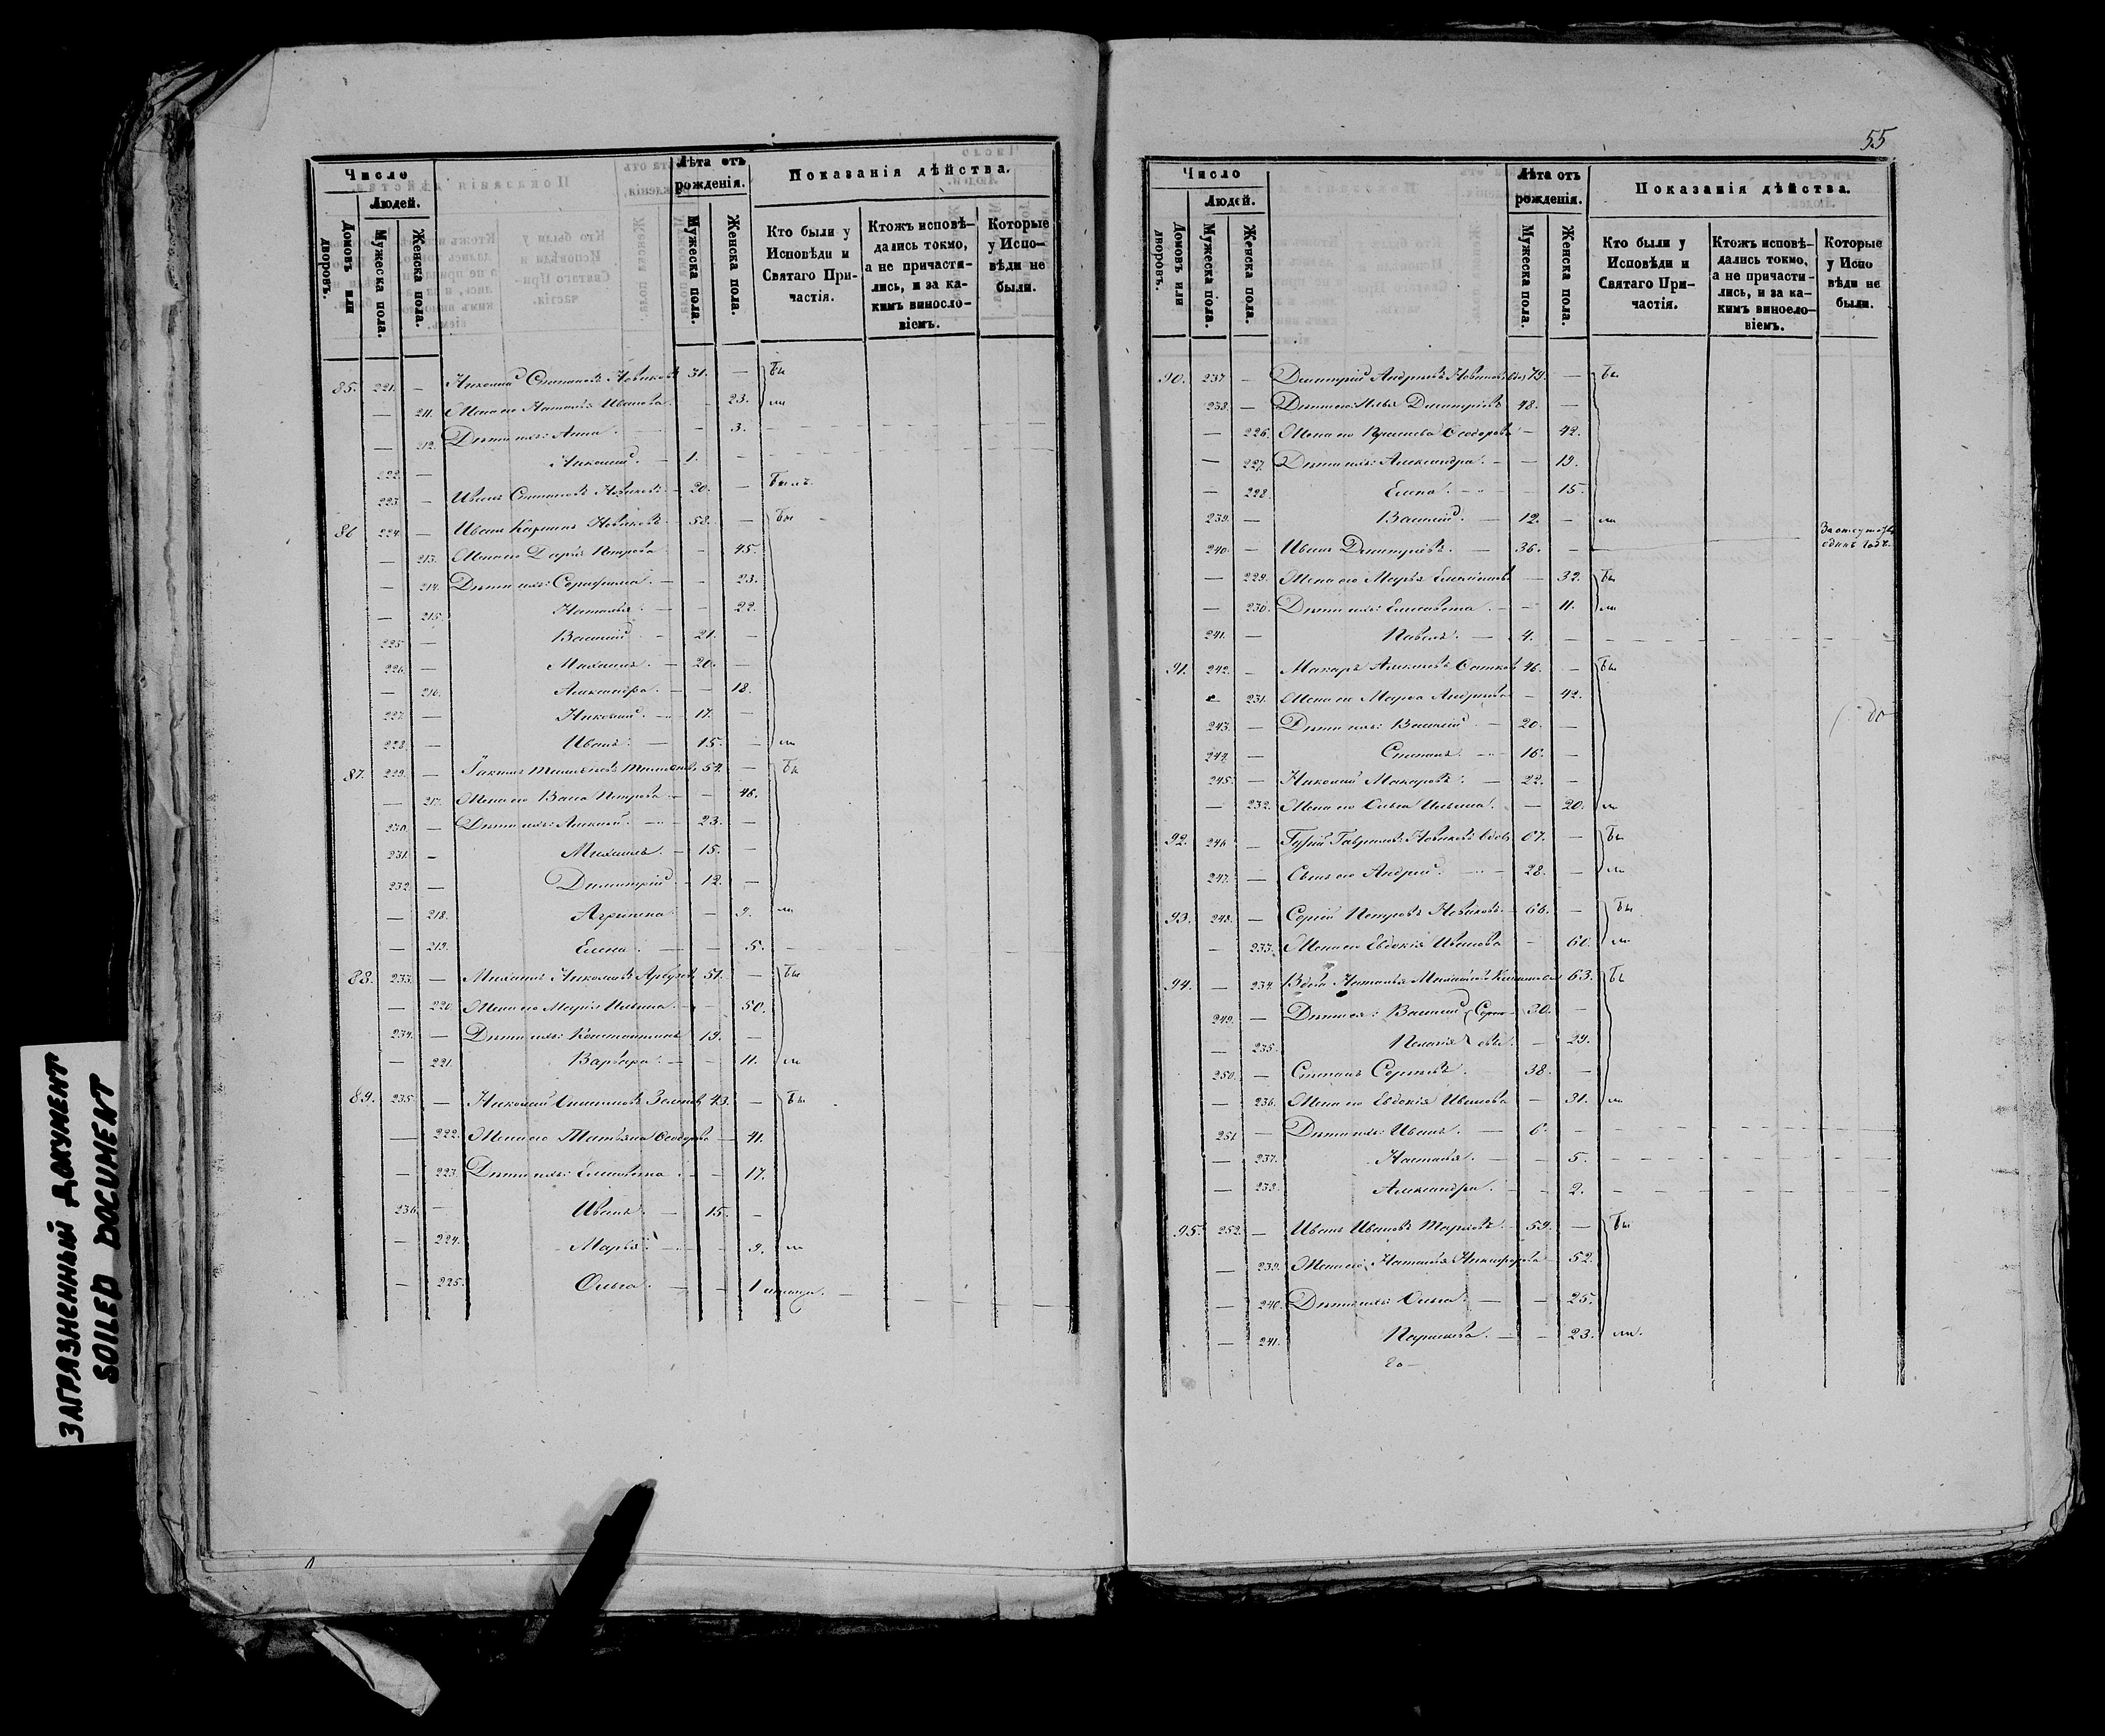 Число
Людей.
Домовъ или дворовъ.
Мужеска пола.
Женска пола.
Лѣта отъ рожденія.
Мужеска пола.
Женска пола.
Показанія дѣйства.
Кто были у Исповѣди и Святаго При-
частія.
Ктожъ исповѣ-
дались токмо,
а не причасти-
лись, и за ка-
кимъ виносло-
віемъ.
Которые
у Испо-
вѣди не
были.
85. 221. — Николай Степановъ Новиковъ 31. — Бы
— 211. Жена его Наталья Иванова — 23. ли
— 212. Дѣти ихъ: Анна — 3.
222. — Николай. 1. —
223. — Иванъ Степановъ Новиковъ 20. — Былъ.
86 224. — Иванъ Новиковъ 58. — Бы
— 213. Жена его Дарья Петрова — 45.
— 214. Дѣти ихъ: Серафима. — 23.
— 215. Наталья — 22.
225 — Василій 21. —
226. — Михаилъ. 20. —
— 216. Александра. — 18.
227. — Николай. 17. —
228. — Иванъ. 15. — ли
87. 229. — 54. — Бы
— 217. Жена его Васса Петрова — 46.
230. — Дѣти ихъ: Алексей. 23. —
231. — Михаилъ. 15. —
232. — Димитрій 12. —
— 218. Агрипина — 9. ли
— 219. Елена. — 5.
88. 233. — Михаилъ Николаевъ 51. — Бы
— 220. Жена его Марія Ильина. — 50.
234. — Дѣти ихъ: Константинъ 19. —
— 221. Варвара. — 11. ли
89. 235. — Николай 43. — Бы
— 222. Жена его Татьяна Ѳеодорова — 41.
— 223. Дѣти ихъ: Елисавета — 17.
236. — Иванъ. 15. —
— 224. Марья. — 9. ли
— 225. Ольга. — 1
55
Число
Людей.
Домовъ или дворовъ.
Мужеска пола.
Женска пола.
Лѣта отъ рожденія.
Мужеска пола.
Женска пола.
Показанія дѣйства.
Кто были у
Исповѣди и
Святаго При-
частія.
Ктожъ исповѣ-
дались токмо,
а не причасти-
лись, и за ка-
кимъ виносло-
віемъ.
Которые
у Испо
вѣди не
были.
90. 237 — Димитрій Андреевъ Новиковъ вдов 79. — Бы
238. — Дѣти его: Илья Димитріевъ 48. —
— 226. Жена его Ѳеодорова — 42.
— 227. Дѣти ихъ: Александра. — 19.
— 228. Елена. — 15.
239. — Василій. 12. — ли
240. — Иванъ Димитріевъ. 36. — За отсутств. одинъ годъ.
— 229. Жена его Марья — 32. Бы
— 230. Дѣти ихъ: Елисавета. — 11. ли
241. — Павелъ. 4. —
91. 242. — Макаръ Алексеевъ 46. — Бы
— 231. Жена его Марѳа Андреева — 42.
243. — Дѣти ихъ: Василій 20. —
244. — Степанъ. 16. —
245. — Николай Макаровъ. 22. —
— 232. Жена его Ольга Ильина. — 20. ли
92. 246. — Гурій Гавриловъ Новиковъ вдов 67. — Бы
247. — Сынъ его Андрей. 28. — ли
93. 248. — Сергій Петровъ Новиковъ 66. — Бы
— 233. Жена его Евдокія Иванова — 60. ли
94. — 234. Вдова Наталья Михайлова 63. Бы
249. — Дѣти ея: Василій 30. —
— 235. Пелагія — 29.
250. — Степанъ Сергѣевъ. 38. —
— 236. Жена его Евдокія Иванова — 31. ли
251 — Дѣти ихъ: Иванъ. 6. —
— 237. Наталья. — 5.
— 238. Александра. — 2.
95. 252. — Иванъ Ивановъ 59. — Бы
— 239. Жена его Наталья Никифорова — 52.
— 240. Дѣти ихъ: Ольга. — 25.
— 241. — 23. ли.
ЗАГРЯЗНЕННЫЙ ДОКУМЕНТ
SOILED DOCUMENT